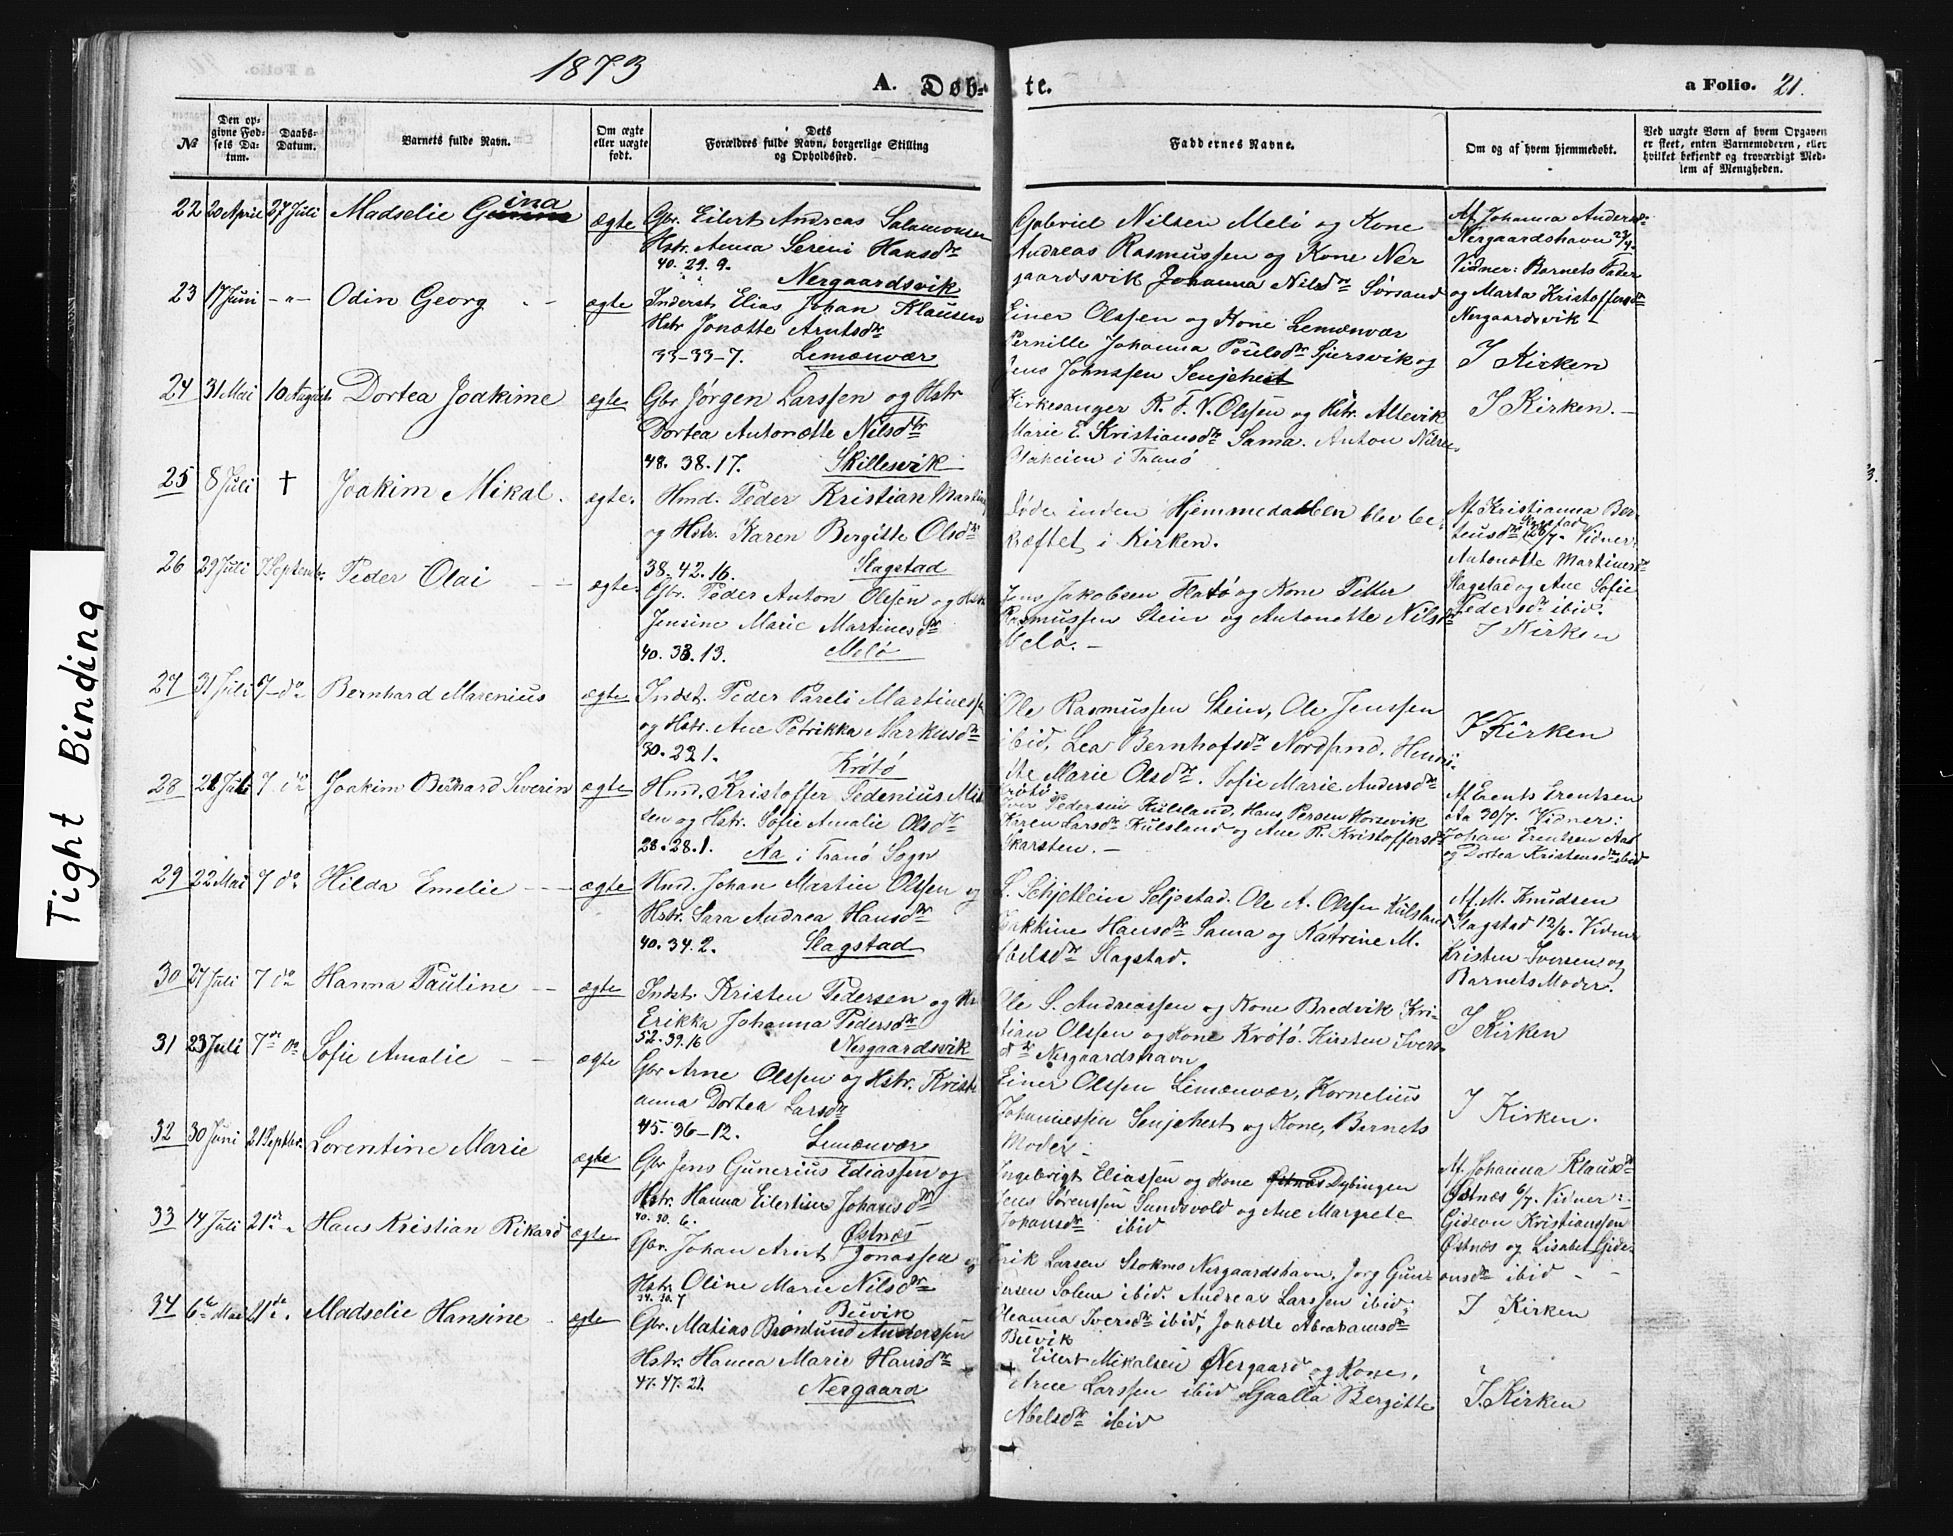 1873
A. Døb-
te.
a Folio. 21.
№
Den op-
givne Fød-
sels Da-
tum.
Daabs-
Datum.
Barnets fulde Navn.
Om ægte
eller uægte
født.
Dets
Forældres fulde Navn, borgerlige Stilling
og Opholdssted.
Faddernes Navne.
Om og af hvem hjemmedøbt.
Ved uægte Born af hvem Opgaven
er skeet, enten Barnemoderen, eller
hvilket bekjendt og troværdigt Med-
lem af Menigheden.
22 20 April 27 Juli Madselie Gina ægte
Gbr. Eilert Andreas Salamonsen
Hstr. Anna Sereni Hansdr
40. 29. 9.
Nergaardsvik
Gabriel Nilsen Melö og Kone
Andreas Rasmussen og Kone Ner
gaardsvik Johanna Nilsdr Sörsand
Af Johanna Andersdr
Nergaardshavn 27/4
Vidner: Barnets Fader
og Marta Kristoffersdr
Nergaardsvik
23 17 Juni -"- Odin Georg -- ægte
Inderst Elias Johan Klausen
Hstr Jonætte Arntsdr
33-33-7. Lemænvær
Einer Olssen og Kone Lemænvær
Pernille Johanna Poulsdr Sjersvik og
Jens Johnssen Senjehest
I Kirken
24 31 Mai 10 August Dortea Joakime ægte
Gbr Jørgen Larssen og Hstr
Dortea Antonætte Nilsdtr
48. 38. 17. Skillesvik
Kirkesanger R. F. V. Olssen og Hstr. Altevik
Marie E. Kristiansdr Sama. Anton Nilsen
i Tranö
I Kirken. -
25 8 Juli † Joakim Mikal. ægte.
Hmd. Peder Kristian Martin
og Hstr. Karen Bergitte Olsdr
38. 42. 16. Slagstad
Døde inden Hjemmedaaben blev be-
kræftet i Kirken.
Af Kristianna Ber-
teusdr Kvrstad 128/7. Vidner:
Antonætte Martinusdr
Slagstad og Ane Sofie
Pedersdr ibid.
26 29 Juli 7 Septembr. Peder Olai -- ægte.
Gbr. Peder Anton Olssen og Hstr
Jensine Marie Martinesdr
40. 38. 13. Melö
Jens Jakobsen Hatö og Kone Petter
Rasmussen Stein og Antonette Nilsdr
Melö. -
I Kirken
27 31 Juli 7 - do Bernhard Marenius ægte
Indst. Peder Pareli Martinessen
og Hstr. Ane Petrikka Markusdr
30. 22 1.
Krötö
Ole Rasmussen Stein, Ole Jenssen
ibid, Lea Bernhofsdr Nordsand, Henri-
tte Marie Olsdr. Sofie Marie Andersdr
Krötö
I Kirken
28 21 Juli 7 do Joakim Bernhard Severin ægte
Hmd. Kristoffer Pedenius Mik
sen og Hstr. Sofie Amalie Olsdr
28. 28. 1. Aa i Tranö Sogn
Iver Pedersen Külsland, Hans Persen Horsevik
Karen Larsdr Külsland og Ane R. Kristoffersdr
Skarsten. -
Af Erents Erentsen
Aa 30/7. Vidner:
Johan Erentsen Aa
og Dortea Kristensdr ibid
29 22 Mai 7 do Hilda Emelie -- ægte
Hmd. Johan Martin Olssen og
Hstr. Sara Andrea Hansdr
40. 34. 2. Slagstad
S. Schjetlein Seljestad. Ole A. Olssen Külsland
Hansdr Sama og Katrine M.
Slagstad.
Af M. Knudsen
Slagstad 12/6. Vidner
Kristen Iversen og
Barnets Moder.
30 27 Juli 7 do Hanna Pauline -- ægte
Indst. Kristen Pedersen og Hstr
Erikka Johanna Pedersdr
52. 39. 16 Nergaardsvik
Ole S. Andreassen og Kone Bredvik Kri-
stian Olssen og Kone Krötö. Kirsten Ivers-
dr Nergaardshavn
I Kirken
31 23 Juli 7de do Sofie Amalie -- ægte
Gbr Arne Olssen og Hstr. Kristi
anna Dortea Larsdr
45-36-12. Lemænvær
Einer Olssen Lemænvær, Kornelius
Johannessen Senjehest og Kone, Barnets
Moder -
I Kirken.
32 30 Juni 21 Septbr. Lorentine Marie ægte
Gbr Jens Gunerius Ediassen og
Hstr. Hanna Eilertine Johansdr
40. 30. 6.
Østnæs
Ingebrigt Eliassen og Kone Dybingen
Jens Sørenssen Sundsvold og Ane Margrete
Johansdr ibid
Af Johanna Klausdr
Østnæs 6/7. Vidner:
Gideon Kristianssen
Østnæs og Lisabet Gide-
onsdr ibid - -
33 14 Juli 21de " Hans Kristian Rikard ægte
Gbr. Johan Arnt Jonassen og
Hstr Oline Marie Nilsdr
34. 30. 7
Buvik
Erik Larsen Stokmo Nergaardshavn, Jorg Gun-
Solem ibid. Andreas Larssen ibid,
Oleanna Iversdr ibid, Jonætte Abrahamsdr
Buvik
I Kirken
34 6te Mai 21de ". Madselie Hansine - ægte
Gbr. Matias Brönlund Anderssen
Hstr. Hanna Marie Hansdr
47. 47. 21. Nergaard
Eilert Mikalsen Nergaard og Kone,
Arne Larssen ibid Bergitte
Abelsdr ibid
I Kirken
Tight Binding